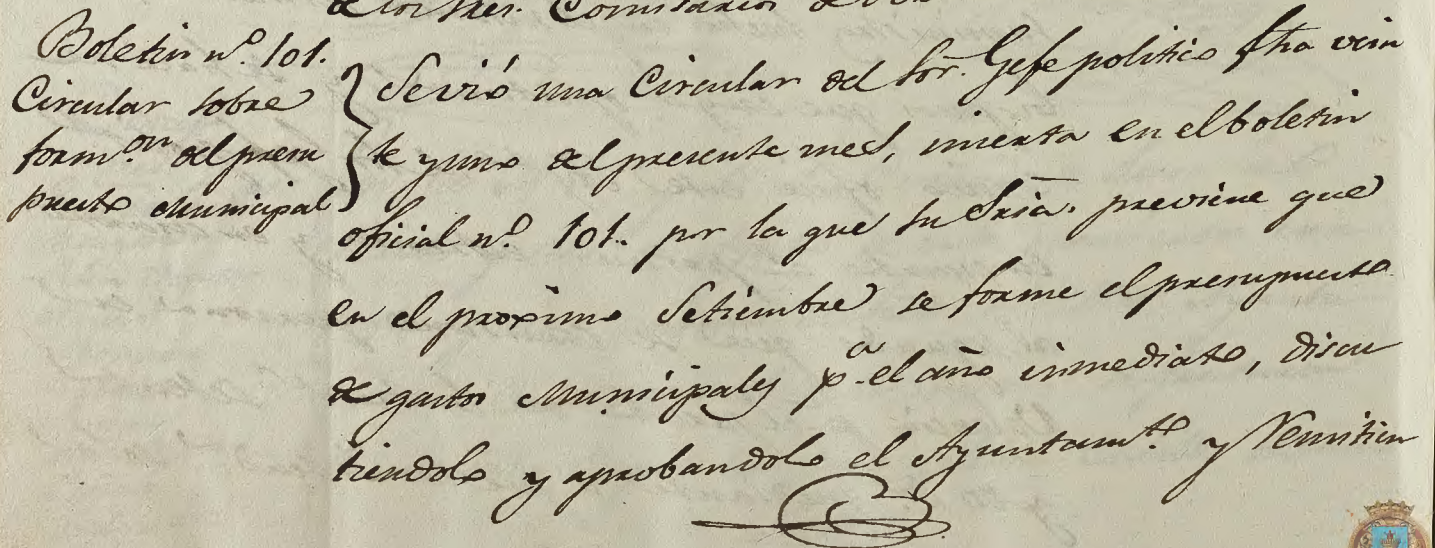 de los Sres. Comisarios de
Boletin n.º 101.
Circular sobre
form.on del presu
puesto Municipal
Se vió una Circular del Sor. Gefe politico fha vein
te y uno del presente mes, inserta en el boletin
oficial n.º 101. por la que su Sria. previene que
en el proximo Setiembre se forme el presupuesto
de gastos Municipales p.a el año inmediato, discu
tiendolo y aprobandolo el Ayuntam.to y Remitien